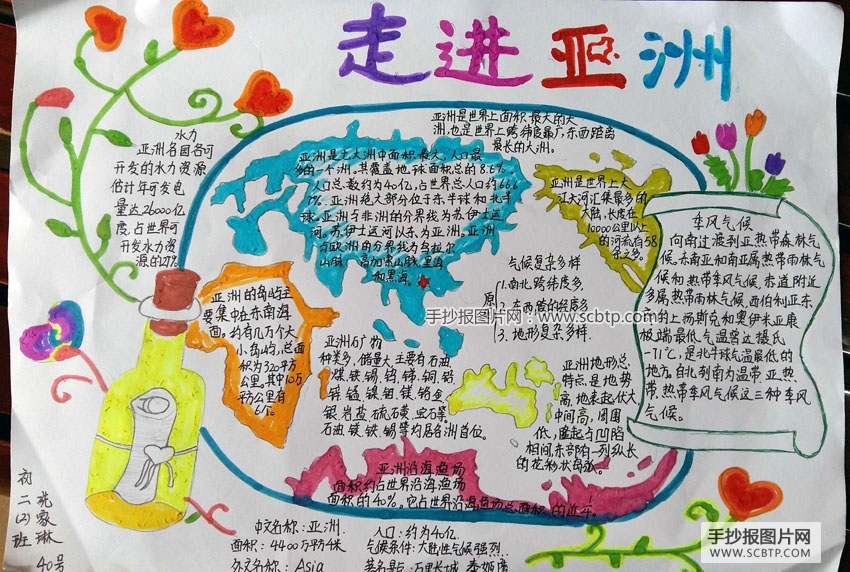 走进亚洲
水力
亚洲各国各可
开发的水力资源
估计年可发电
量达26000亿
度,占世界可
开发水力资
源的27%
亚洲是世界上面积最大的大
洲,也是世界上跨纬度最广,东西距离
最长的大洲。
亚洲是七大洲中面积最大,人口最
多的一个洲。其覆盖地球面积总的8.6%
人口总数约为40亿,占世界总人口约66.6
7%。亚洲绝大部分位于东半球和北半
球。亚洲与非洲的分界线为苏伊士运
河。苏伊士运河以东为亚洲。亚洲
与欧洲的分界线为乌拉尔
山脉
高加索山脉,里海
和黑海。
亚洲是世界上大
江大河汇集最多的
大陆,长度在
1000公里以上
的河流有58
条之多。
季风气候
向南过渡到亚热带森林气
候。东南亚和南亚属热带雨林气
候和热带季风气候。赤道附近
多属热带雨林气候。西伯利亚东
的上扬斯克和奥伊米亚康
极端最低气温曾达摄氏
-71℃,是北半球气温最低的
地方。自北到南为温带、亚热
带、热带季风气候这三种季风
气候。
气候复杂多样
原
1.南北跨纬度多
2.东西跨的经度多
3.地形复杂多样.
亚洲的岛屿主
要集中在东南海
面。约有几万个大
小岛屿,总面
积为320平方
公里,其中10万
平方公里有
6个。
亚洲矿物
种类多,储量大,主要有石油
煤、铁、锡、钨、锑、铜、铅
锌、锰、镍、钼、镁、铬、金
银、岩盐、硫、石黄、宝石等
石油、镁、铁、锡等均居各洲首位。
亚洲地形总
特点,是地势
高,地表起伏大
中间高,周围
低,隆起与凹陷
相间,东部有一列纵长
的花彩状岛弧。
亚洲沿海渔场
面积约占世界沿海渔场
面积的40%。它占世界沿海渔场总面积
初二(2)班
40号
中文名称:亚洲.
面积:4400万平方千米
外文名称:Asia
人口:约为40亿.
气候条件:大陆性气候强烈.
著名景点:万里长城
手抄报图片网:www.scbtp.com
手抄报图片网
WWW.SCBTP.COM